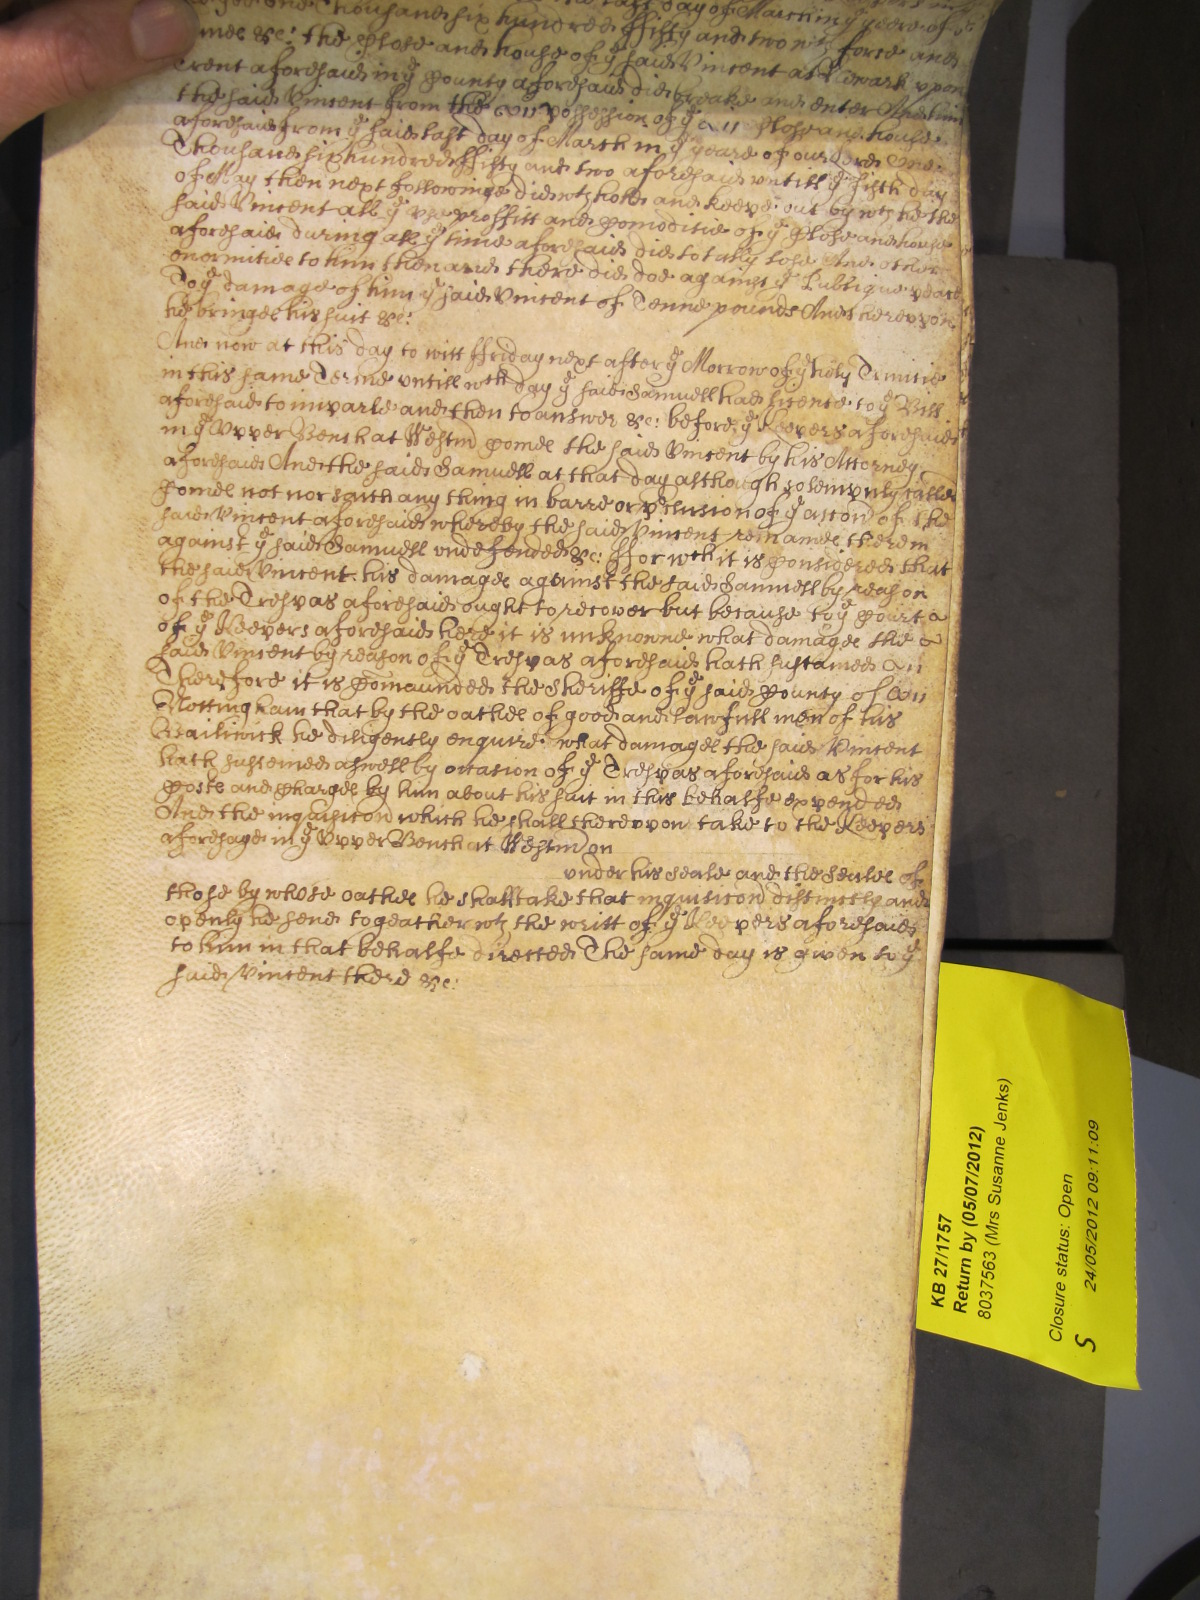 the last day of March in ye yeere of o
one Thousand six hundred ffifty and two wth force and
armes &c: the Close and house of ye said Vincent at Newark vpon
Trent aforesaid in ye County aforesaid did breake and enter And him
the said Vincent from the possession of ye Close and house
aforesaid from ye said last day of March in ye yeare of our Lord One
Thousand six hundred ffifty and two aforesaid vntill ye fifth day
of May then next followinge did wthhold and keepe out by wch he the
said Vincent all ye vse proffitt and Comoditie of ye Close and house
aforesaid during all ye time aforesaid did totally lose And other
enormities to him then and there did doe against ye Publique peace
To ye damage of him ye said Vincent of Tenne pounds And therevpon
he bringes his suit &c:
And now at this day to witt ffriday next after ye Morrow of ye holy Trinitie
in this same Terme vntill wch day ye said Samuell had licence to ye Bill
aforesaid to imparle and then to answer &c: before ye Keepers aforesaid
in ye Vpper Bench at Westm Comes the said Vincent by his Attorney
aforesaid And the said Samuell at that day although solempnly called
Comes not nor saith any thing in barre or pclusion of ye accon of the
said Vincent aforesaid whereby the said Vincent remaines therein
against ye said Samuell vndefended &c: ffor wch it is Considered that
the said Vincent his damages against the said Samuell by reason
of the Trespas aforesaid ought to recover but because to ye Court
of ye Keepers aforesaid here it is unknowne what damages the
said Vincent by reason of ye Trespas aforesaid hath sustained
Therefore it is Comaunded the Sheriffe of ye said County of
Nottingham that by the oathes of good and lawfull men of his
Bailiwick he diligently enquire what damages the said Vincent
hath susteined aswell by occasion of ye Trespas aforesaid as for his
Costs and Charges by him about his suit in this behalfe expended
And the inquisicon which he shall therevpon take to the Keepers
aforesaid in ye Vpper Bench at Westm on
vnder his seale and the seales of
those by whose oathes he shall take that inquisicon distinctly and
openly he send togeather wth the writt of ye Keepers aforesaid
to him in that behalfe directed The same day is given to ye
said Vincent there &c:
KB 27/1757
Return by (05/07/2012)
8037563 (Mrs Susanne Jenks)
Closure status: Open
S 24/05/2012 09:11:09